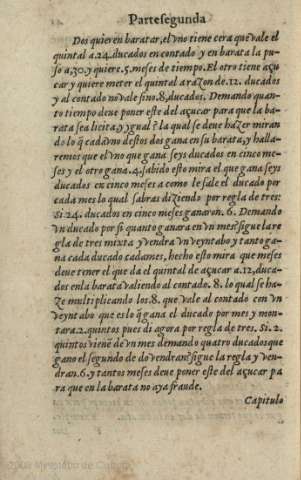 Parte segunda
Dos quieren baratar, el vno tiene cera que vale el
quintal a.24.ducados en contado y en barata la pu-
so a,30.y quiere.5.meses de tiempo. El otro tiene açu
car y quiere meter el quintal a razon de.12. ducados
y al contado no vale sino.8.ducados. Demando quan-
to tiempo deue poner este del açucar para que la ba-
rata sea licita, y ygual? la qual se deue hazer miran
do lo q̃ cada vno destos dos gana en su barata, y halla-
remos que el vno que gana seys ducados en cinco me-
ses y el otro gana.4.sabido esto mira el que gana seys
ducados en cinco meses a como le sale el ducado por
cada mes lo qual sabras diziendo por regla de tres:
Si.24. ducados en cinco meses ganaron. 6. Demando
vn ducado por si quanto ganara en vn mes? sigue la re
gla de tres mixta y vendra vn veyntabo y tanto ga-
na cada ducado cada mes, hecho esto mira que meses
deue tener el que da el quintal de açucar a.12,duca-
dos en la barata valiendo al contado. 8. lo qual se ha-
ze multiplicando los.8. que vale al contado con vn
veyntabo que es lo q̃ gana el ducado por mes y mon-
tara.2.quintos pues di agora por regla de tres. Si.2.
quintos vienẽ de vn mes demando quatro ducados que
gano el segundo de do vendran? sigue la regla y ven-
dran.6.y tantos meses deue poner este del açucar pa
ra que en la barata no aya fraude.
Capitulo
2009 Ministerio de Cultura